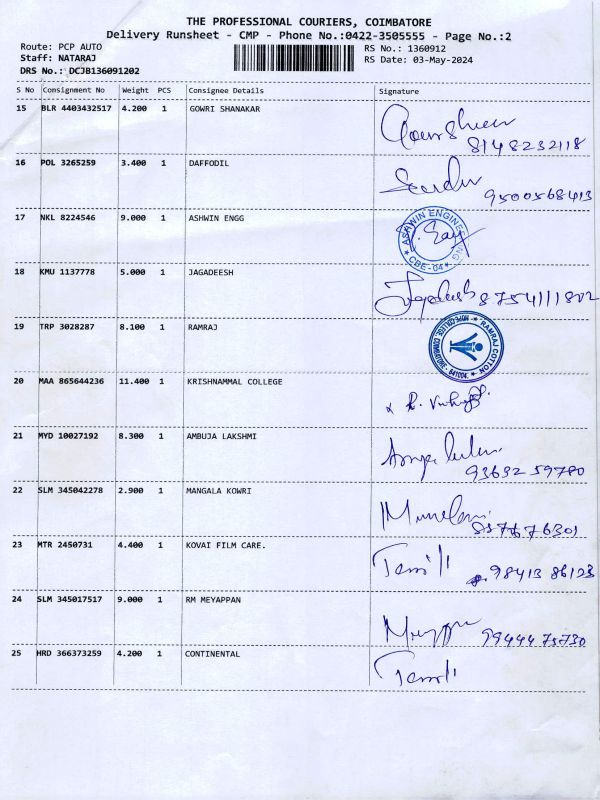 THE PROFESSIONAL COURIERS, COIMBATORE
Delivery Runsheet - CMP - Phone No.:0422-3505555 - Page No.:2
Route: PCP AUTO RS No.: 1360912
Staff: NATARAJ RS Date: 03-May-2024
DRS No.: DCJB136091202
S No Consignment No Weight PCS Consignee Details Signature
15 BLR 4403432517 4.200 1 GOWRI SHANAKAR
8148232118
16 POL 3265259 3.400 1 DAFFODIL
9500568413
17 NKL 8224546 9.000 1 ASHWIN ENGG
ASHWIN ENGINEERING
CBE-04
18 KMU 1137778 5.000 1 JAGADEESH
Jagadeesh 8754111802
19 TRP 3028287 8.100 1 RAMRAJ
RAMRAJ COTTON
HOPE COLLEGE, COIMBATORE - 641004.
20 MAA 865644236 11.400 1 KRISHNAMMAL COLLEGE
21 MYD 10027192 8.300 1 AMBUJA LAKSHMI
93632 59780
22 SLM 345042278 2.900 1 MANGALA KOWRI
23 MTR 2450731 4.400 1 KOVAI FILM CARE.
98413 86123
24 SLM 345017517 9.000 1 RM MEYAPPAN
99444 75730
25 HRD 366373259 4.200 1 CONTINENTAL